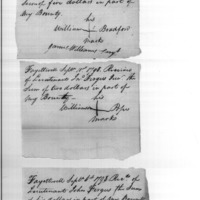 Sum of five dollars in part of
my Bounty.
his
William Bradford
mark
James Williams
Fayettevill Septr. 1798. Receiv'd
of Lieutenant Jn. Fergus the
Sum of two dollars in part of
my Bounty
his
William
mark
Fayettevill Septr. 6th 1798 Recd. of
Lieutenant John Fergus the Sum
of six dollars in part of my Bounty